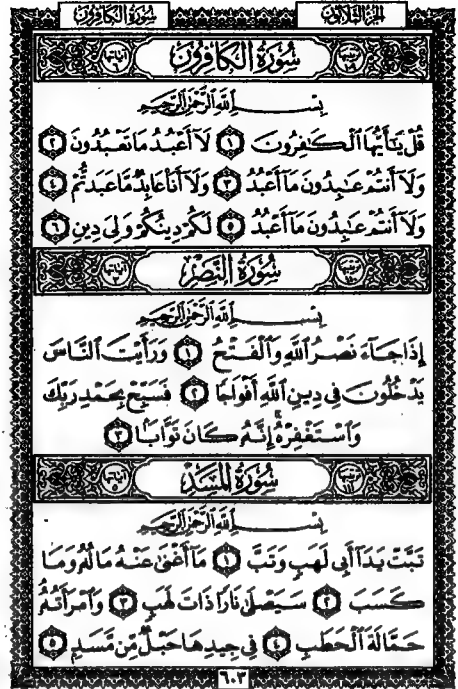 سُورَةُ الكَافِرُونَ الجُزْءُ الثَّلَاثُونَ
سُورَةُ الكَافِرُونَ
بِسْمِ اللَّهِ الرَّحْمَٰنِ الرَّحِيمِ
قُلْ يَٰٓأَيُّهَا ٱلْكَٰفِرُونَ ١ لَآ أَعْبُدُ مَا تَعْبُدُونَ ٢
وَلَآ أَنتُمْ عَٰبِدُونَ مَآ أَعْبُدُ ٣ وَلَآ أَنَا۠ عَابِدٌ مَّا عَبَدتُّمْ ٤
وَلَآ أَنتُمْ عَٰبِدُونَ مَآ أَعْبُدُ ٥ لَكُمْ دِينُكُمْ وَلِيَ دِينِ ٦
سُورَةُ النَّصْرِ
بِسْمِ اللَّهِ الرَّحْمَٰنِ الرَّحِيمِ
إِذَا جَآءَ نَصْرُ ٱللَّهِ وَٱلْفَتْحُ ١ وَرَأَيْتَ ٱلنَّاسَ
يَدْخُلُونَ فِي دِينِ ٱللَّهِ أَفْوَاجًا ٢ فَسَبِّحْ بِحَمْدِ رَبِّكَ
وَٱسْتَغْفِرْهُ إِنَّهُۥ كَانَ تَوَّابًۢا ٣
سُورَةُ المَسَدِ
بِسْمِ اللَّهِ الرَّحْمَٰنِ الرَّحِيمِ
تَبَّتْ يَدَآ أَبِي لَهَبٍ وَتَبَّ ١ مَآ أَغْنَىٰ عَنْهُ مَالُهُۥ وَمَا
كَسَبَ ٢ سَيَصْلَىٰ نَارًا ذَاتَ لَهَبٍ ٣ وَٱمْرَأَتُهُۥ
حَمَّالَةَ ٱلْحَطَبِ ٤ فِي جِيدِهَا حَبْلٌ مِّن مَّسَدٍۭ ٥
٦٠٣